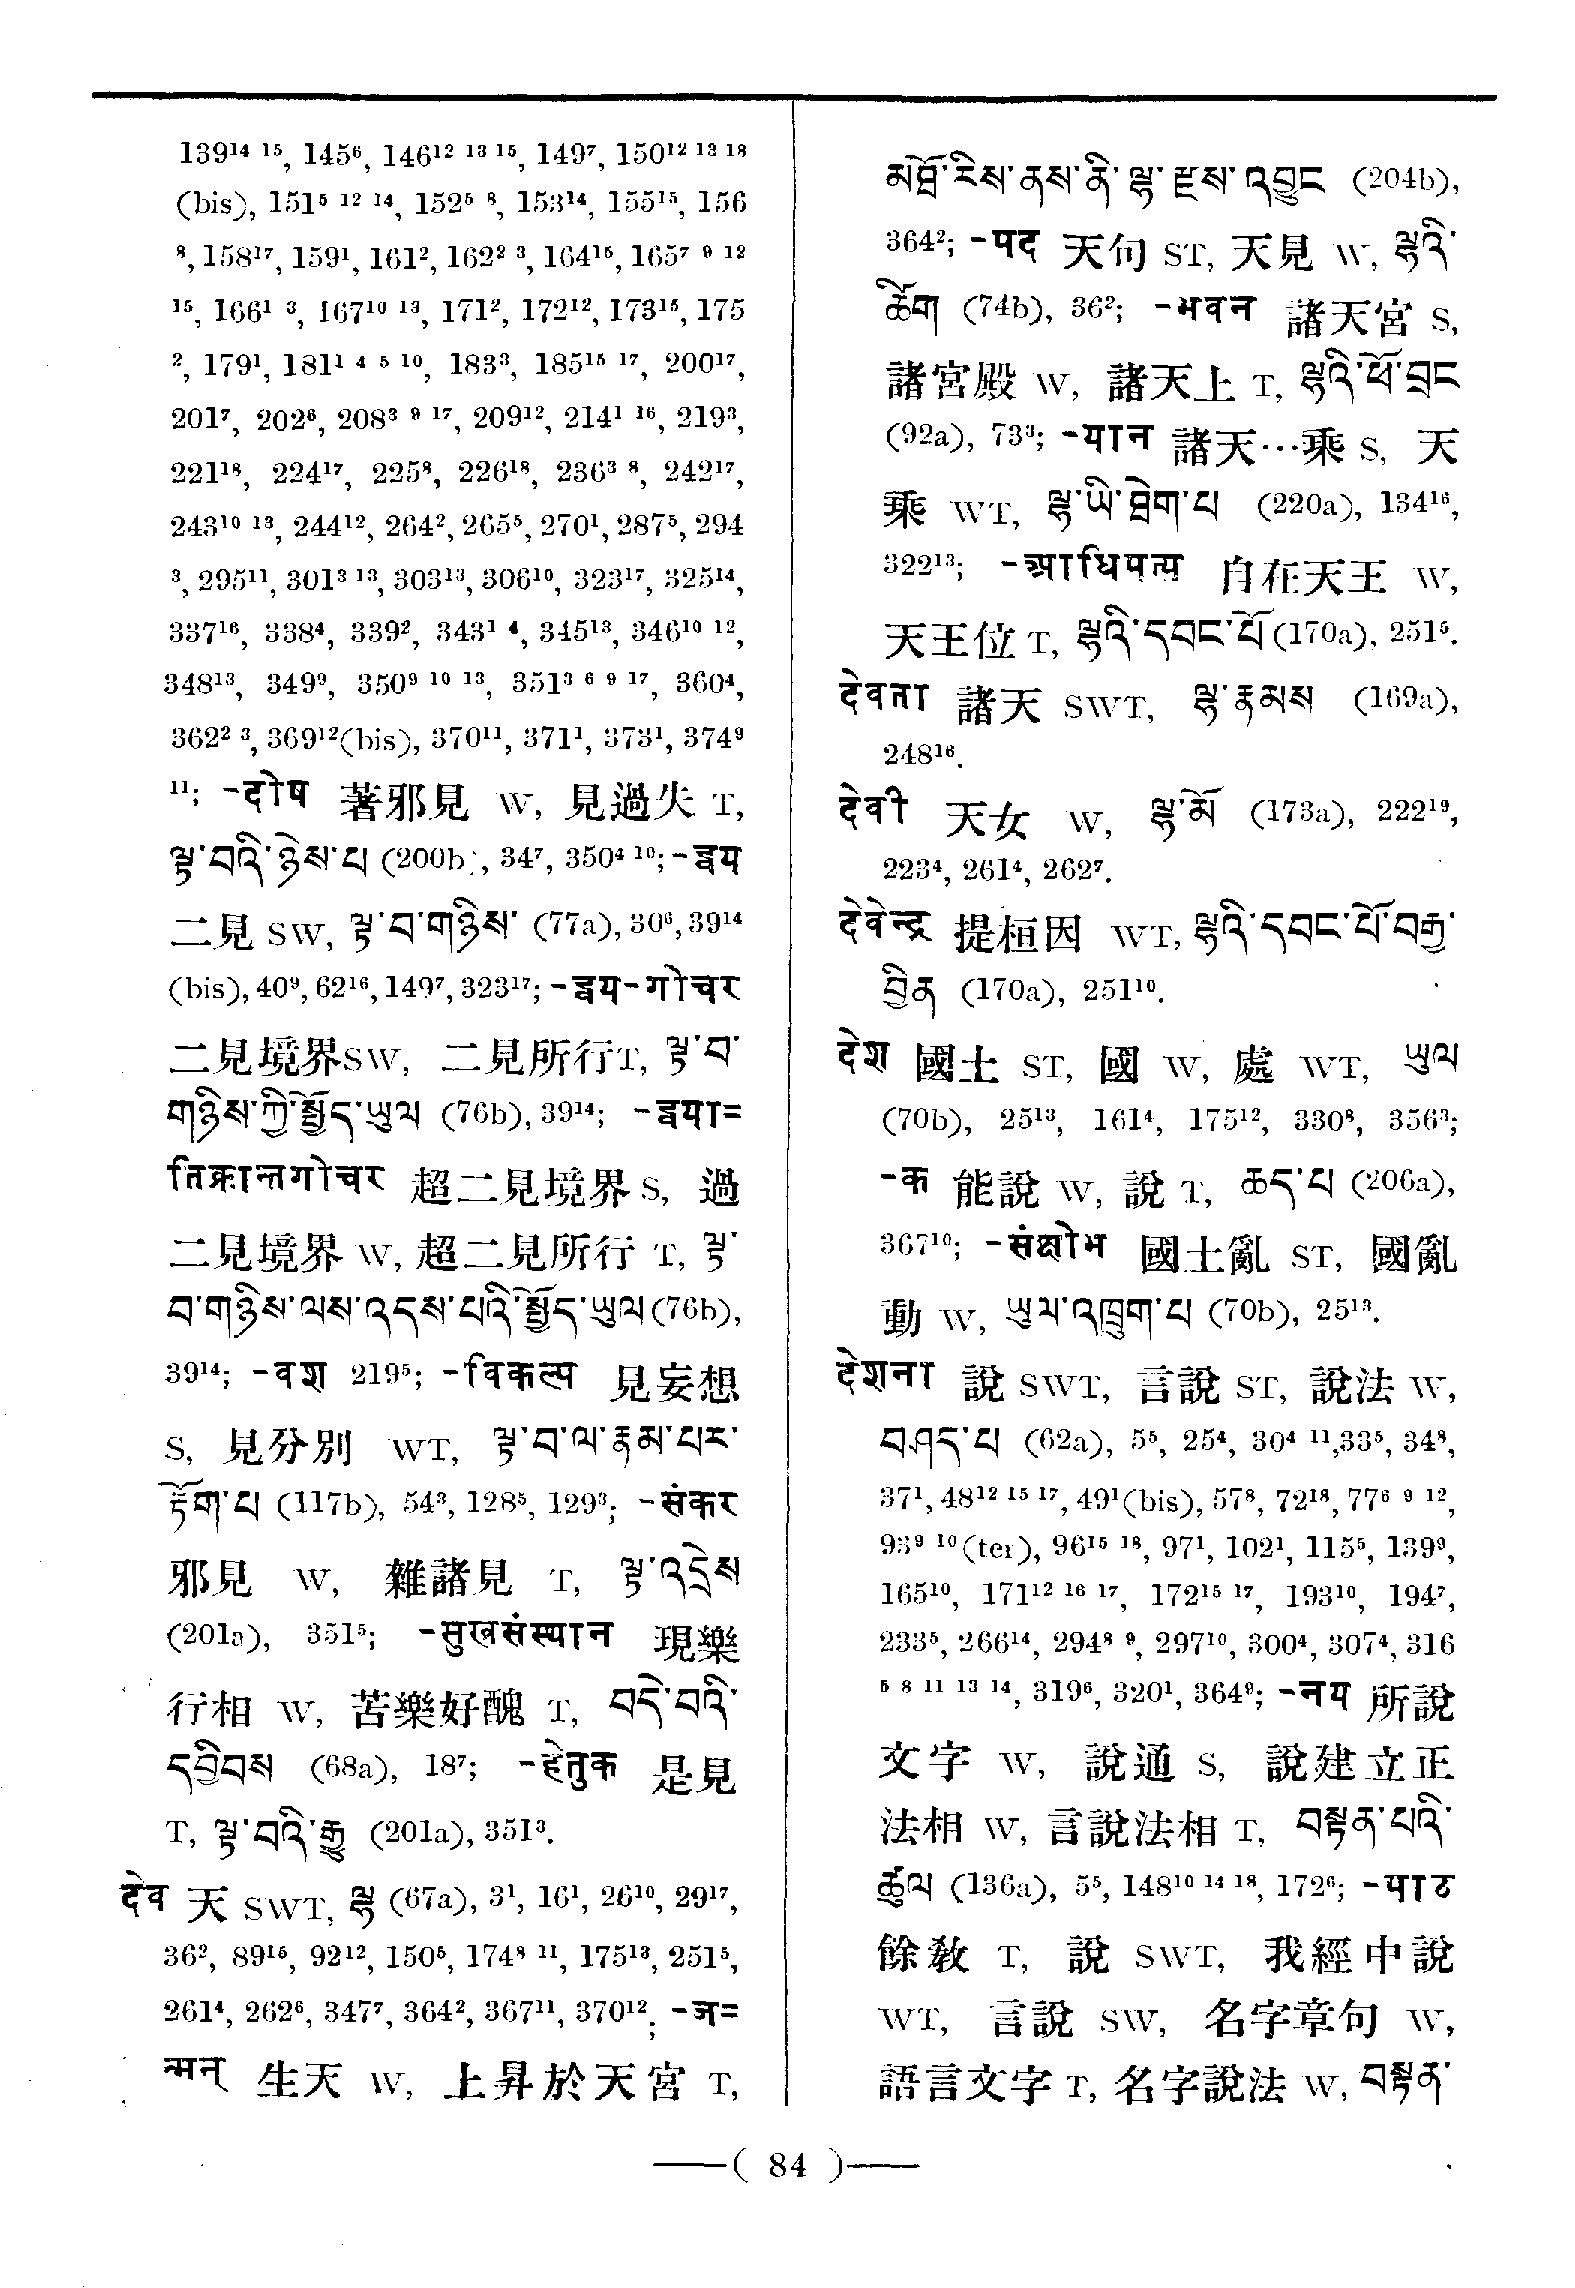 139¹⁴ ¹⁵, 145⁶, 146¹² ¹³ ¹⁵, 149⁷, 150¹² ¹³ ¹⁸
(bis), 151⁵ ¹² ¹⁴, 152⁵ ⁸, 153¹⁴, 155¹⁵, 156
⁸, 158¹⁷, 159¹, 161², 162² ³, 164¹⁵, 165⁷ ⁹ ¹²
¹⁵, 166¹ ³, 167¹⁰ ¹³, 171², 172¹², 173¹⁵, 175
², 179¹, 181¹ ⁴ ⁵ ¹⁰, 183³, 185¹⁵ ¹⁷, 200¹⁷,
201⁷, 202⁶, 208³ ⁹ ¹⁷, 209¹², 214¹ ¹⁶, 219³,
221¹⁸, 224¹⁷, 225⁸, 226¹⁸, 236³ ⁸, 242¹⁷,
243¹⁰ ¹³, 244¹², 264², 265⁵, 270¹, 287⁵, 294
³, 295¹¹, 301³ ¹³, 303¹³, 306¹⁰, 323¹⁷, 325¹⁴,
337¹⁶, 338⁴, 339², 343¹ ⁴, 345¹³, 346¹⁰ ¹²,
348¹³, 349⁹, 350⁹ ¹⁰ ¹³, 351³ ⁶ ⁹ ¹⁷, 360⁴,
362² ³, 369¹²(bis), 370¹¹, 371¹, 373¹, 374⁹
¹¹; -दोष 著邪見 W, 見過失 T,
ལྟ་བའི་ཉེས་པ (200b), 34⁷, 350⁴ ¹⁰; -द्वय
二見 SW, ལྟ་བ་གཉིས་ (77a), 30⁶, 39¹⁴
(bis), 40⁹, 62¹⁶, 149⁷, 323¹⁷; -द्वय-गोचर
二見境界SW, 二見所行T, ལྟ་བ་
གཉིས་ཀྱི་སྤྱོད་ཡུལ (76b), 39¹⁴; -द्वया=
तिक्रान्तगोचर 超二見境界 S, 過
二見境界 W, 超二見所行 T, ལྟ་
བ་གཉིས་ལས་འདས་པའི་སྤྱོད་ཡུལ (76b),
39¹⁴; -वश 219⁵; -विकल्प 見妄想
S, 見分別 WT, ལྟ་བ་ལ་རྣམ་པར་
རྟོག་པ (117b), 54³, 128⁵, 129³; -संकर
邪見 W, 雜諸見 T, ལྟ་འདྲེས
(201a), 351⁵; -सुखसंस्थान 現樂
行相 W, 苦樂好醜 T, བདེ་བའི་
དབྱིབས (68a), 18⁷; -हेतुक 是見
T, ལྟ་བའི་རྒྱུ (201a), 351³.
देव 天 SWT, ལྷ (67a), 3¹, 16¹, 26¹⁰, 29¹⁷,
36², 89¹⁵, 92¹², 150⁵, 174⁸ ¹¹, 175¹³, 251⁵,
261⁴, 262⁶, 347⁷, 364², 367¹¹, 370¹²; -ज=
न्मन् 生天 W, 上昇於天宮 T,
མཐོ་རིས་ནས་ནི་ལྷ་རྫས་འབྱུང (204b),
364²; -पद 天句 ST, 天見 W, ལྷའི་
ཚིག (74b), 36²; -भवन 諸天宮 S,
諸宮殿 W, 諸天上 T, ལྷའི་ཕོ་བྲང
(92a), 73³; -यान 諸天…乘 S, 天
乘 WT, ལྷ་ཡི་ཐེག་པ (220a), 134¹⁶,
322¹³; -आधिपत्य 自在天王 W,
天王位 T, ལྷའི་དབང་པོ (170a), 251⁵.
देवता 諸天 SWT, ལྷ་རྣམས (169a),
248¹⁶.
देवी 天女 W, ལྷ་མོ (173a), 222¹⁹,
223⁴, 261⁴, 262⁷.
देवेन्द्र 提桓因 WT, ལྷའི་དབང་པོ་བརྒྱ་
བྱིན (170a), 251¹⁰.
देश 國土 ST, 國 W, 處 WT, ཡུལ
(70b), 25¹³, 161⁴, 175¹², 330⁸, 356³;
-क 能說 W, 說 T, ཆད་པ (206a),
367¹⁰; -संक्षोभ 國土亂 ST, 國亂
動 W, ཡུལ་འཁྲུག་པ (70b), 25¹³.
देशना 說 SWT, 言說 ST, 說法 W,
བཤད་པ (62a), 5⁵, 25⁴, 30⁴ ¹¹,33⁵, 34⁸,
37¹, 48¹² ¹⁵ ¹⁷, 49¹(bis), 57⁸, 72¹⁸, 77⁶ ⁹ ¹²,
93⁹ ¹⁰(ter), 96¹⁵ ¹⁸, 97¹, 102¹, 115⁵, 139⁹,
165¹⁰, 171¹² ¹⁶ ¹⁷, 172¹⁵ ¹⁷, 193¹⁰, 194⁷,
233⁵, 266¹⁴, 294⁸ ⁹, 297¹⁰, 300⁴, 307⁴, 316
⁵ ⁸ ¹¹ ¹³ ¹⁴, 319⁶, 320¹, 364⁹; -नय 所說
文字 W, 說通 S, 說建立正
法相 W, 言說法相 T, བསྟན་པའི་
ཚུལ (136a), 5⁵, 148¹⁰ ¹⁴ ¹⁸, 172⁶; -पाठ
餘敎 T, 說 SWT, 我經中說
WT, 言說 SW, 名字章句 W,
語言文字 T, 名字說法 W, བསྟན་
—( 84 )—